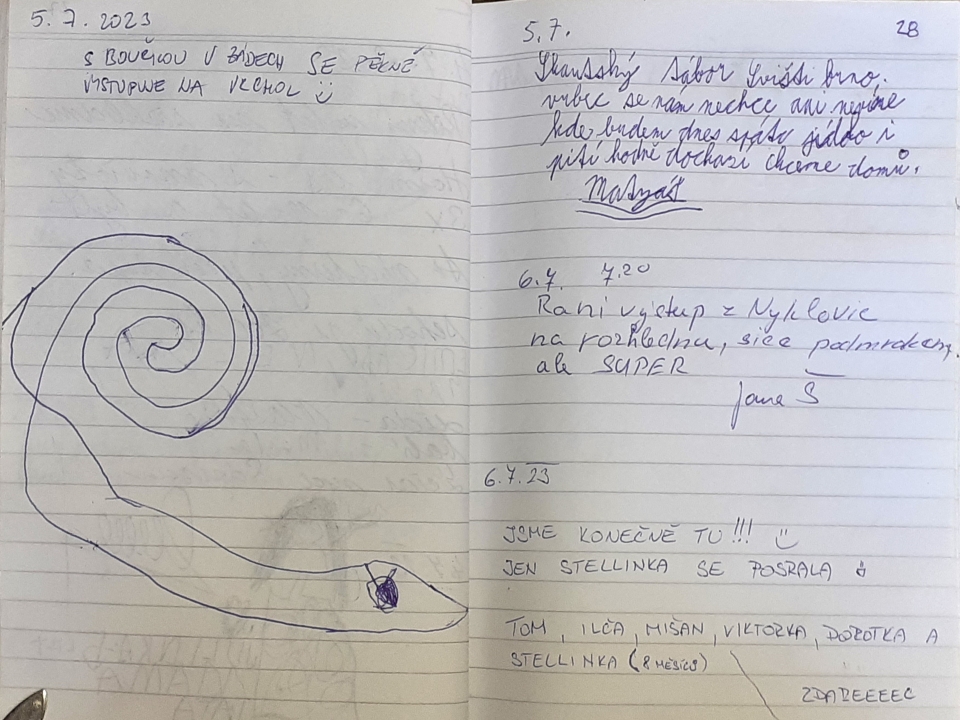 5.7.2023
S BOUŘKOU V ZÁDECH SE PĚKNĚ
VYSTUPUJE NA VRCHOL
5.7.
28
Skautský tábor Svišti Brno.
vůbec se nám nechce ani nevíme
kde budem dnes spát jídlo i
pití hodně dochazí chceme domů.
Matyáš
6.7. 7.20
Raní výstup z Nyklovic
na rozhlednu, sice podmrakem,
ale SUPER
Jana Š
6.7.23
JSME KONEČNĚ TU!!!
JEN STELLINKA SE POSRALA
TOM, ILČA, MIŠAN, VIKTORKA, DOROTKA A
STELLINKA (8 MĚSÍCŮ)
ZDAREEEEC